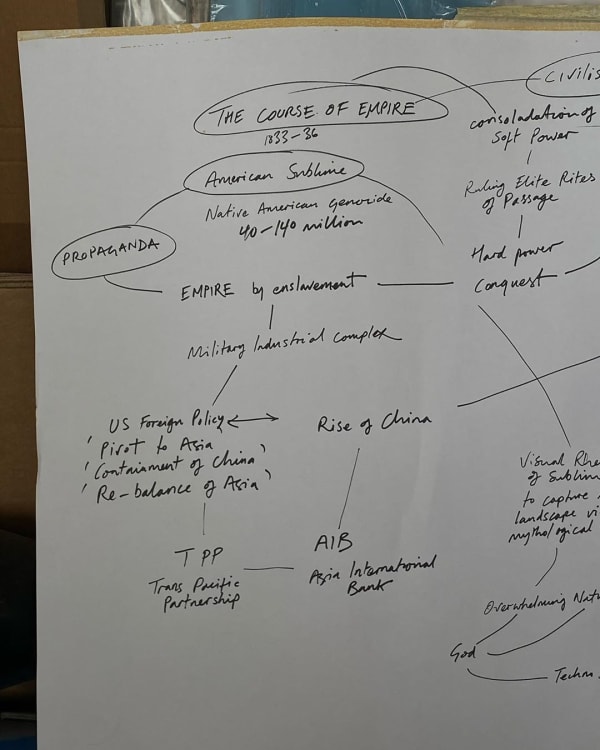 THE COURSE OF EMPIRE
1833-36
American Sublime
Native American Genocide
40-140 million
PROPAGANDA
EMPIRE by enslavement
Military Industrial complex
US Foreign Policy
'Pivot to Asia
'Containment of China'
'Re-balance of Asia'
TPP
Trans Pacific
Partnership
Rise of China
AIB
Asia International
Bank
consoladation of
Soft Power
Ruling Elite Rites
of Passage
Hard power
Conquest
Visual
of
to capture
landscape
mythological
Overwhelming
God